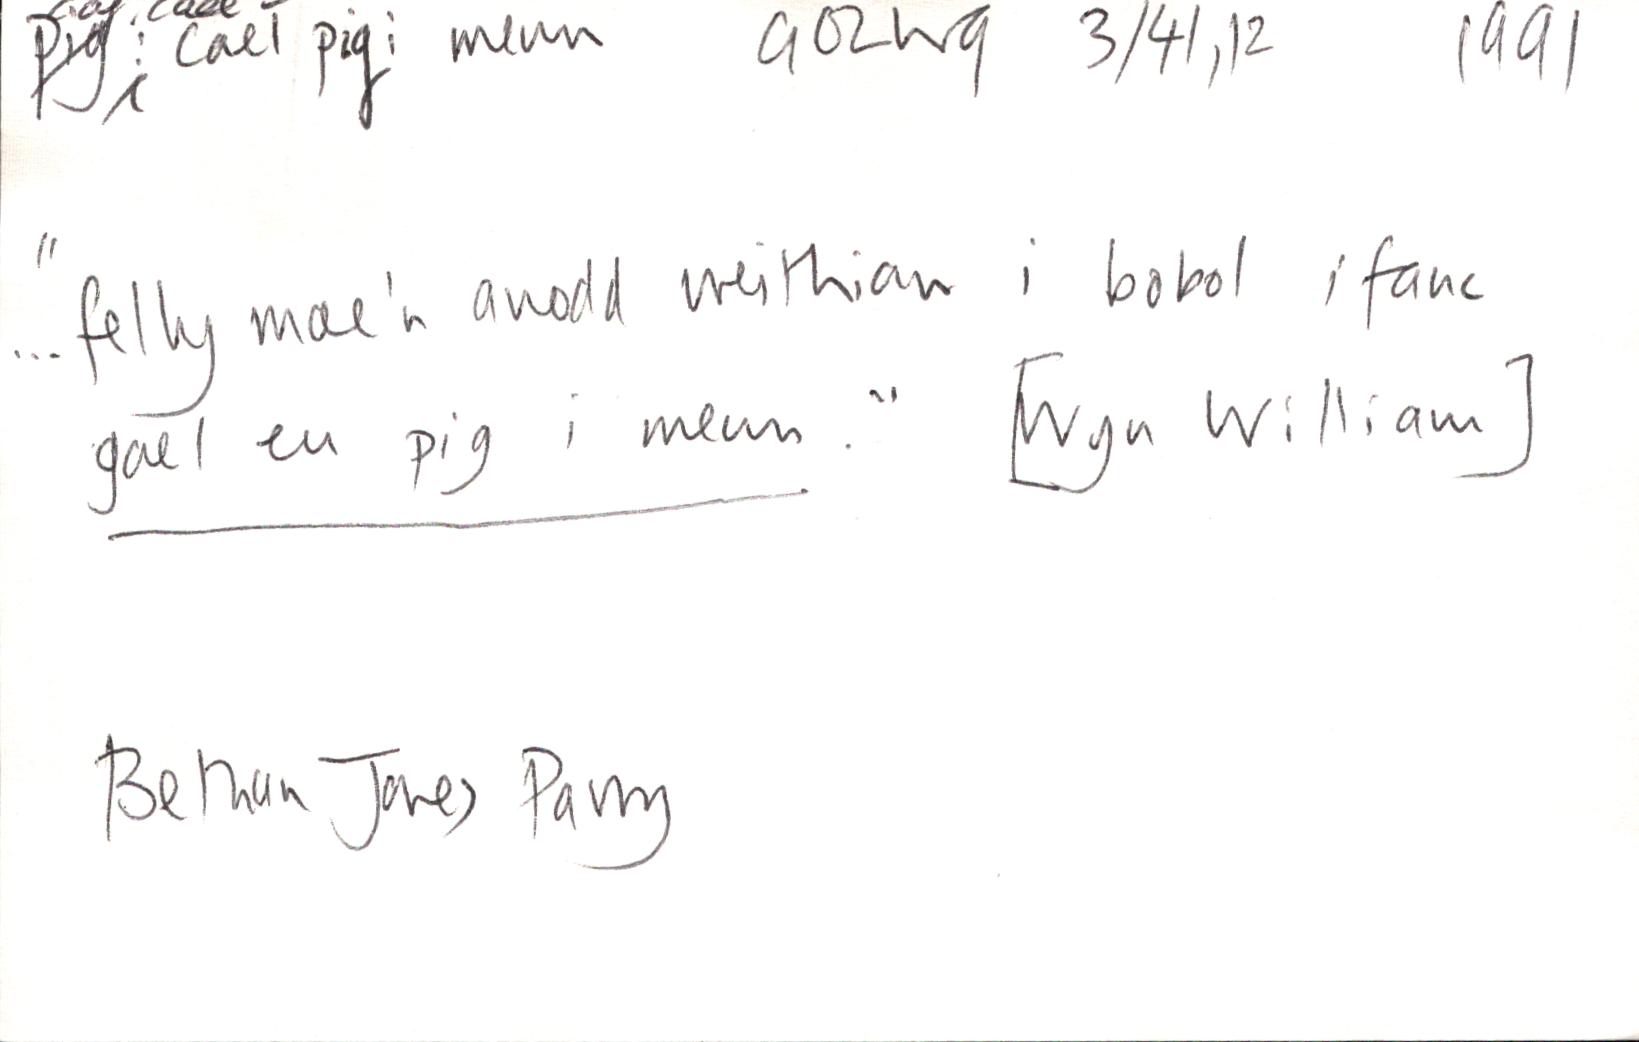 pig: cael pig i mewn GOLWG 3/41,12 1991
"...felly mae'n anodd weithiau i bobol ifanc
gael eu pig i mewn." [Wyn William]
Bethan Jones Parry